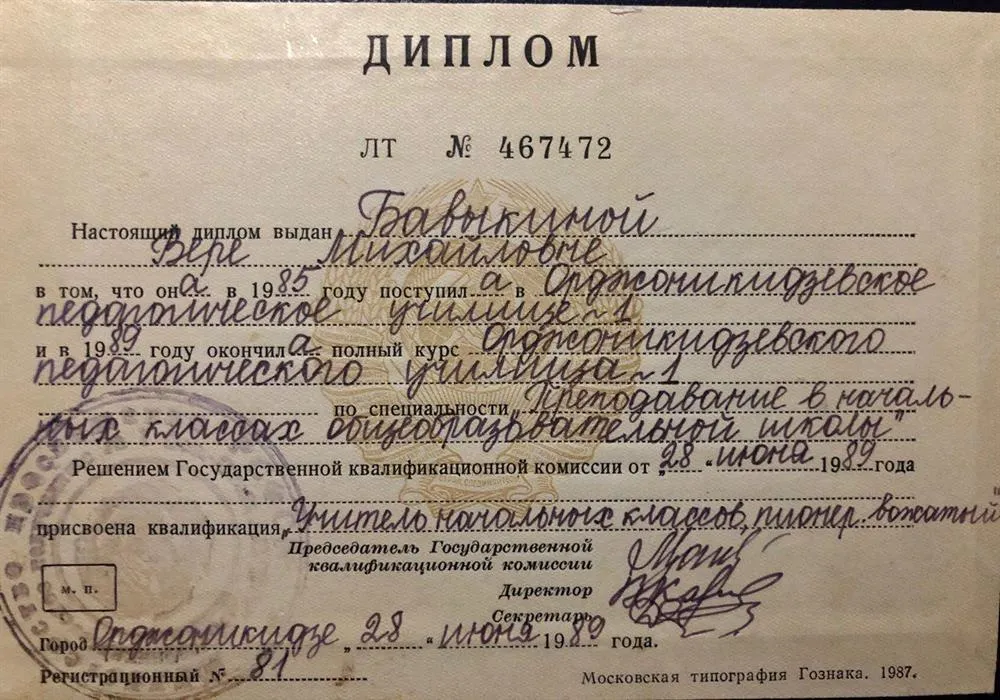 ДИПЛОМ
ЛТ № 467472
Настоящий диплом выдан Бавыкиной
Вере Михайловне
в том, что она в 1985 году поступила в Орджоникидзевское
педагогическое училище №1
и в 1989 году окончила полный курс Орджоникидзевского
педагогического училища №1
по специальности „Преподавание в началь-
ных классах общеобразовательной школы"
Решением Государственной квалификационной комиссии от „28" июня 1989 года
присвоена квалификация „Учитель начальных классов, пионер. вожатый"
Председатель Государственной
квалификационной комиссии
Директор
м. п.
Секретарь
Город Орджоникидзе „28" июня 1989 года.
Регистрационный № 81
Московская типография Гознака. 1987.